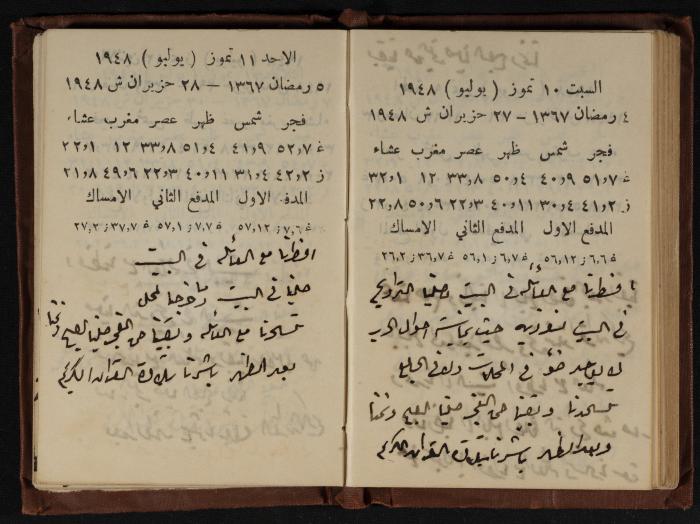 السبت ١٠ تموز ( يوليو ) ١٩٤٨
٤ رمضان ١٣٦٧ – ٢٧ حزيران ش ١٩٤٨
فجر شمس ظهر عصر مغرب عشاء
غ ٥١,٧ ٤٠,٩ ٥٠,٤ ٣٣,٨ ١٢ ٣٢,١
ز ٤١,٢ ٣٠,٤ ٤٠,١١ ٢٢,٣ ٥٠,٦ ٢٢,٨
المدفع الاول المدفع الثاني الامساك
غ ٦,٦ ز ٥٦,١٢ غ ٦,٧ ز ٥٦,١ غ ٣٦,٧ ز ٢٦,٢
افطرنا مع العائلة في البيت وصلينا التراويح
في البيت حيث احوال الحرب
لا يوجد ضوء في المحلات وفي الجامع
تسحرنا وبقينا حتى الفجر صلينا الصبح ونمنا
وبعد الظهر باشرنا بتلاوة القرآن الكريم
الاحد ١١ تموز ( يوليو ) ١٩٤٨
٥ رمضان ١٣٦٧ – ٢٨ حزيران ش ١٩٤٨
فجر شمس ظهر عصر مغرب عشاء
غ ٥٢,٧ ٤١,٩ ٥١,٤ ٣٣,٨ ١٢ ٢٢,١
ز ٤٢,٢ ٣١,٤ ٤٠,١١ ٢٢,٣ ٤٩,٦ ٢١,٨
المدفع الاول المدفع الثاني الامساك
غ ٧,٦ ز ٥٧,١٢ غ ٧,٧ ز ٥٧,١ غ ٣٧,٧ ز ٢٧,٢
افطرنا مع العائلة في البيت
صلينا في البيت وما خرجنا لمحل
تسحرنا مع العائلة وبقينا حتى الفجر صلينا الصبح ونمنا
بعد الظهر باشرنا بتلاوة القرآن الكريم